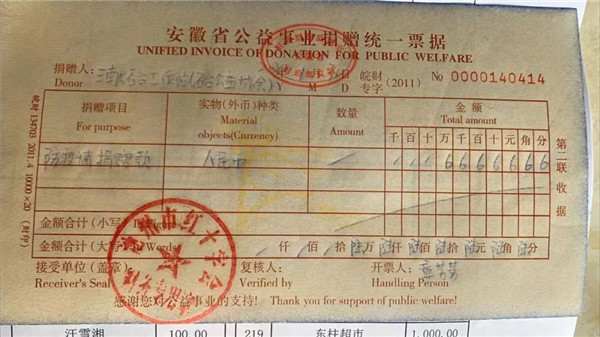 安徽省公益事业捐赠统一票据
UNIFIED INVOICE OF DONATION FOR PUBLIC WELFARE
捐赠人：
Donor Y M D 皖财专字 (2011) No 0000140414
捐赠项目 实物（外币）种类 数量 金额
For purpose Material objects(Currency) Amount Total amount
千 百 十 万 千 百 十 元 角 分
捐赠款 人民币 6 6 6 6 6 6
金额合计（小写）
金额合计（大写） Words 仟 佰 拾 陆万 陆仟 陆佰 陆拾 陆元 陆角 陆分
接受单位（盖章） 复核人： 开票人：
Receiver's Seal Verified by Handling Person
感谢您对公益事业的支持！ Thank you for support of public welfare!
第二联 收据
皖财 134703 2011.4 10000×20
市红十字会
汪雪湘 100.00 219 东柱超市 1,000.00